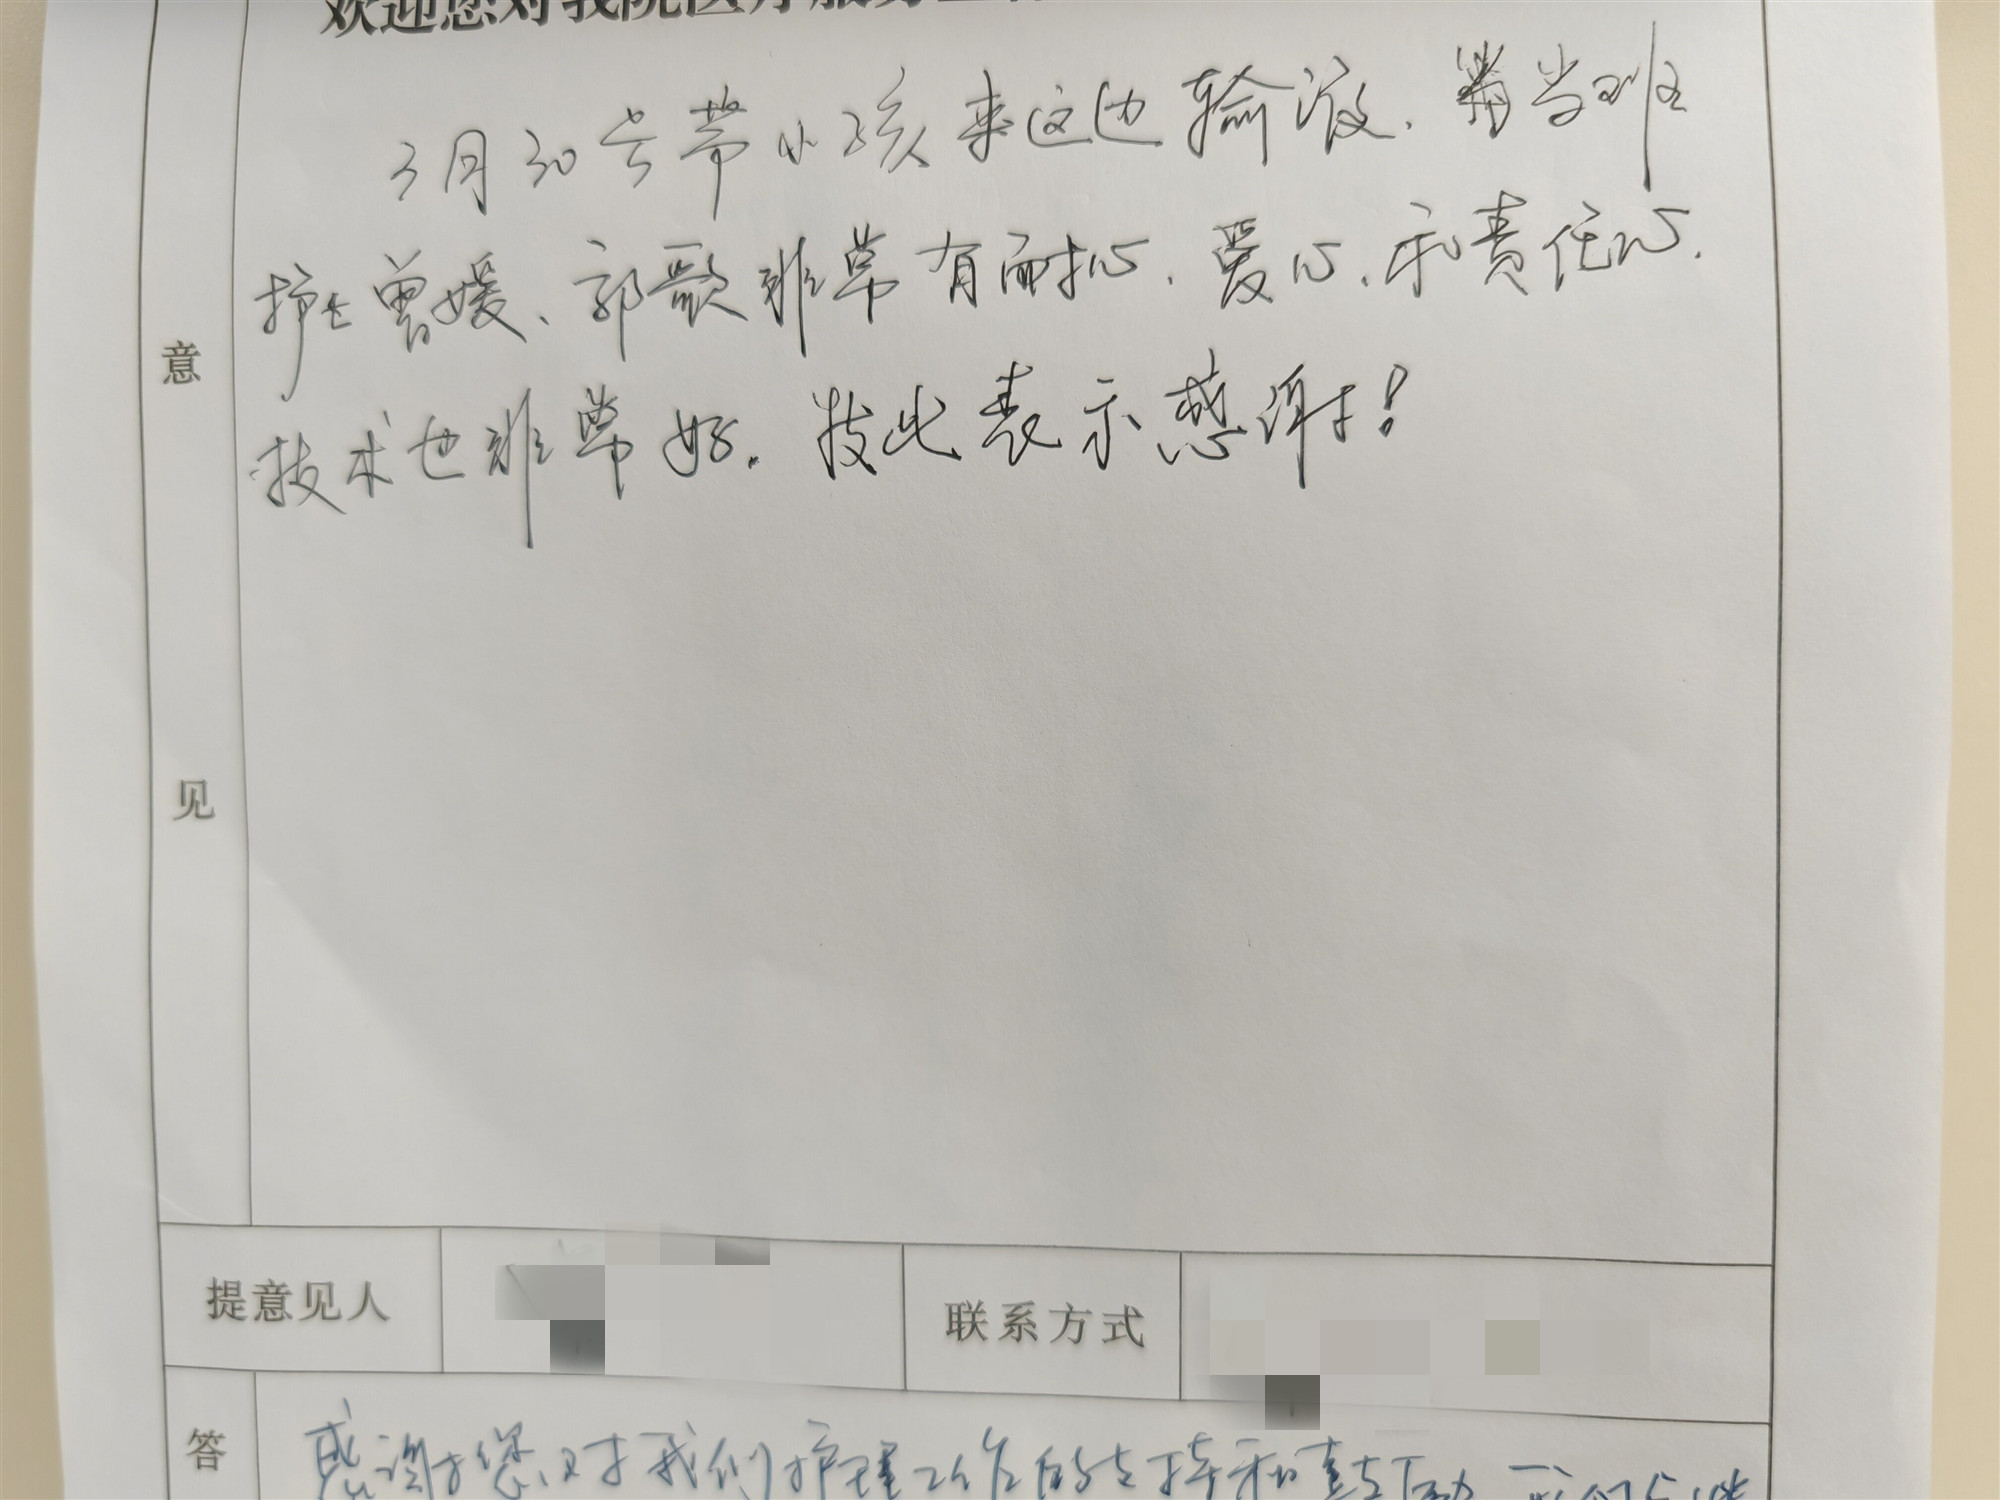 欢迎您对我院医疗服务工
3月30号带小孩来这边输液.当班
护士曾媛、郭歌非常有耐心.爱心.和责任心.
技术也非常好.技此表示感谢！
意
见
提意见人
联系方式
答
感谢您对我们护理工作的支持和鼓励